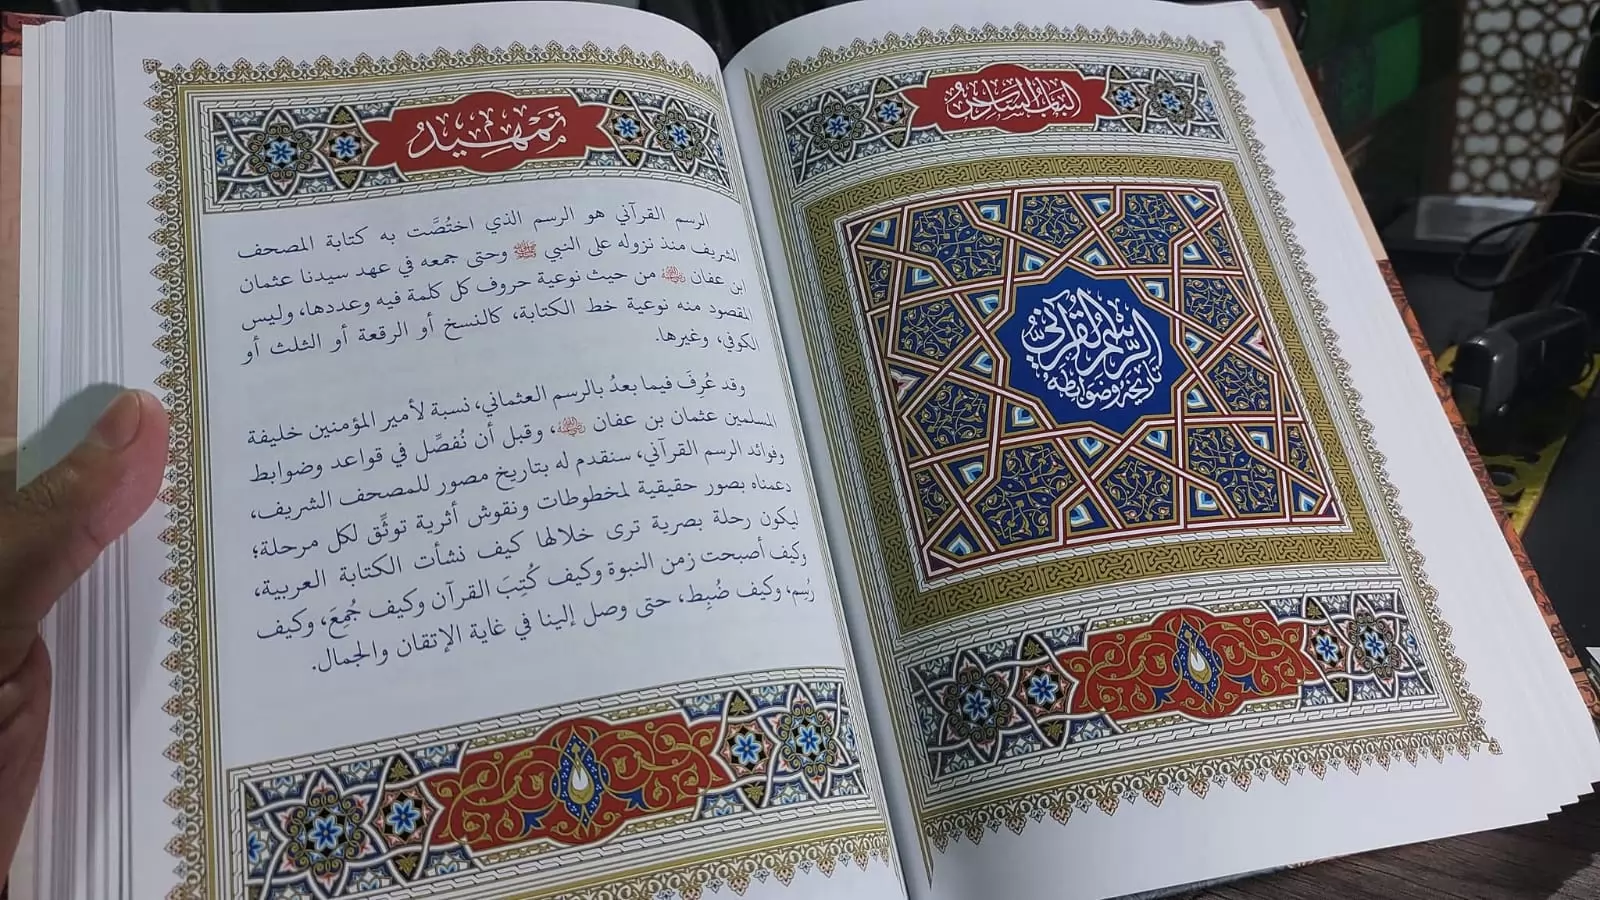 الباب السادس
الرسم القرآني
تاريخه وضوابطه
تمهيد
الرسم القرآني هو الرسم الذي اختُصَّت به كتابة المصحف
الشريف منذ نزوله على النبي ﷺ وحتى جمعه في عهد سيدنا عثمان
ابن عفان رضي الله عنه من حيث نوعية حروف كل كلمة فيه وعددها، وليس
المقصود منه نوعية خط الكتابة، كالنسخ أو الرقعة أو الثلث أو
الكوفي، وغيرها.
وقد عُرِفَ فيما بعدُ بالرسم العثماني، نسبة لأمير المؤمنين خليفة
المسلمين عثمان بن عفان رضي الله عنه، وقبل أن نُفصِّل في قواعد وضوابط
وفوائد الرسم القرآني، سنقدم له بتاريخ مصور للمصحف الشريف،
دعمناه بصور حقيقية لمخطوطات ونقوش أثرية توثِّق لكل مرحلة؛
ليكون رحلة بصرية ترى خلالها كيف نشأت الكتابة العربية،
وكيف أصبحت زمن النبوة وكيف كُتِبَ القرآن وكيف جُمِعَ، وكيف
رُسم، وكيف ضُبِط، حتى وصل إلينا في غاية الإتقان والجمال.